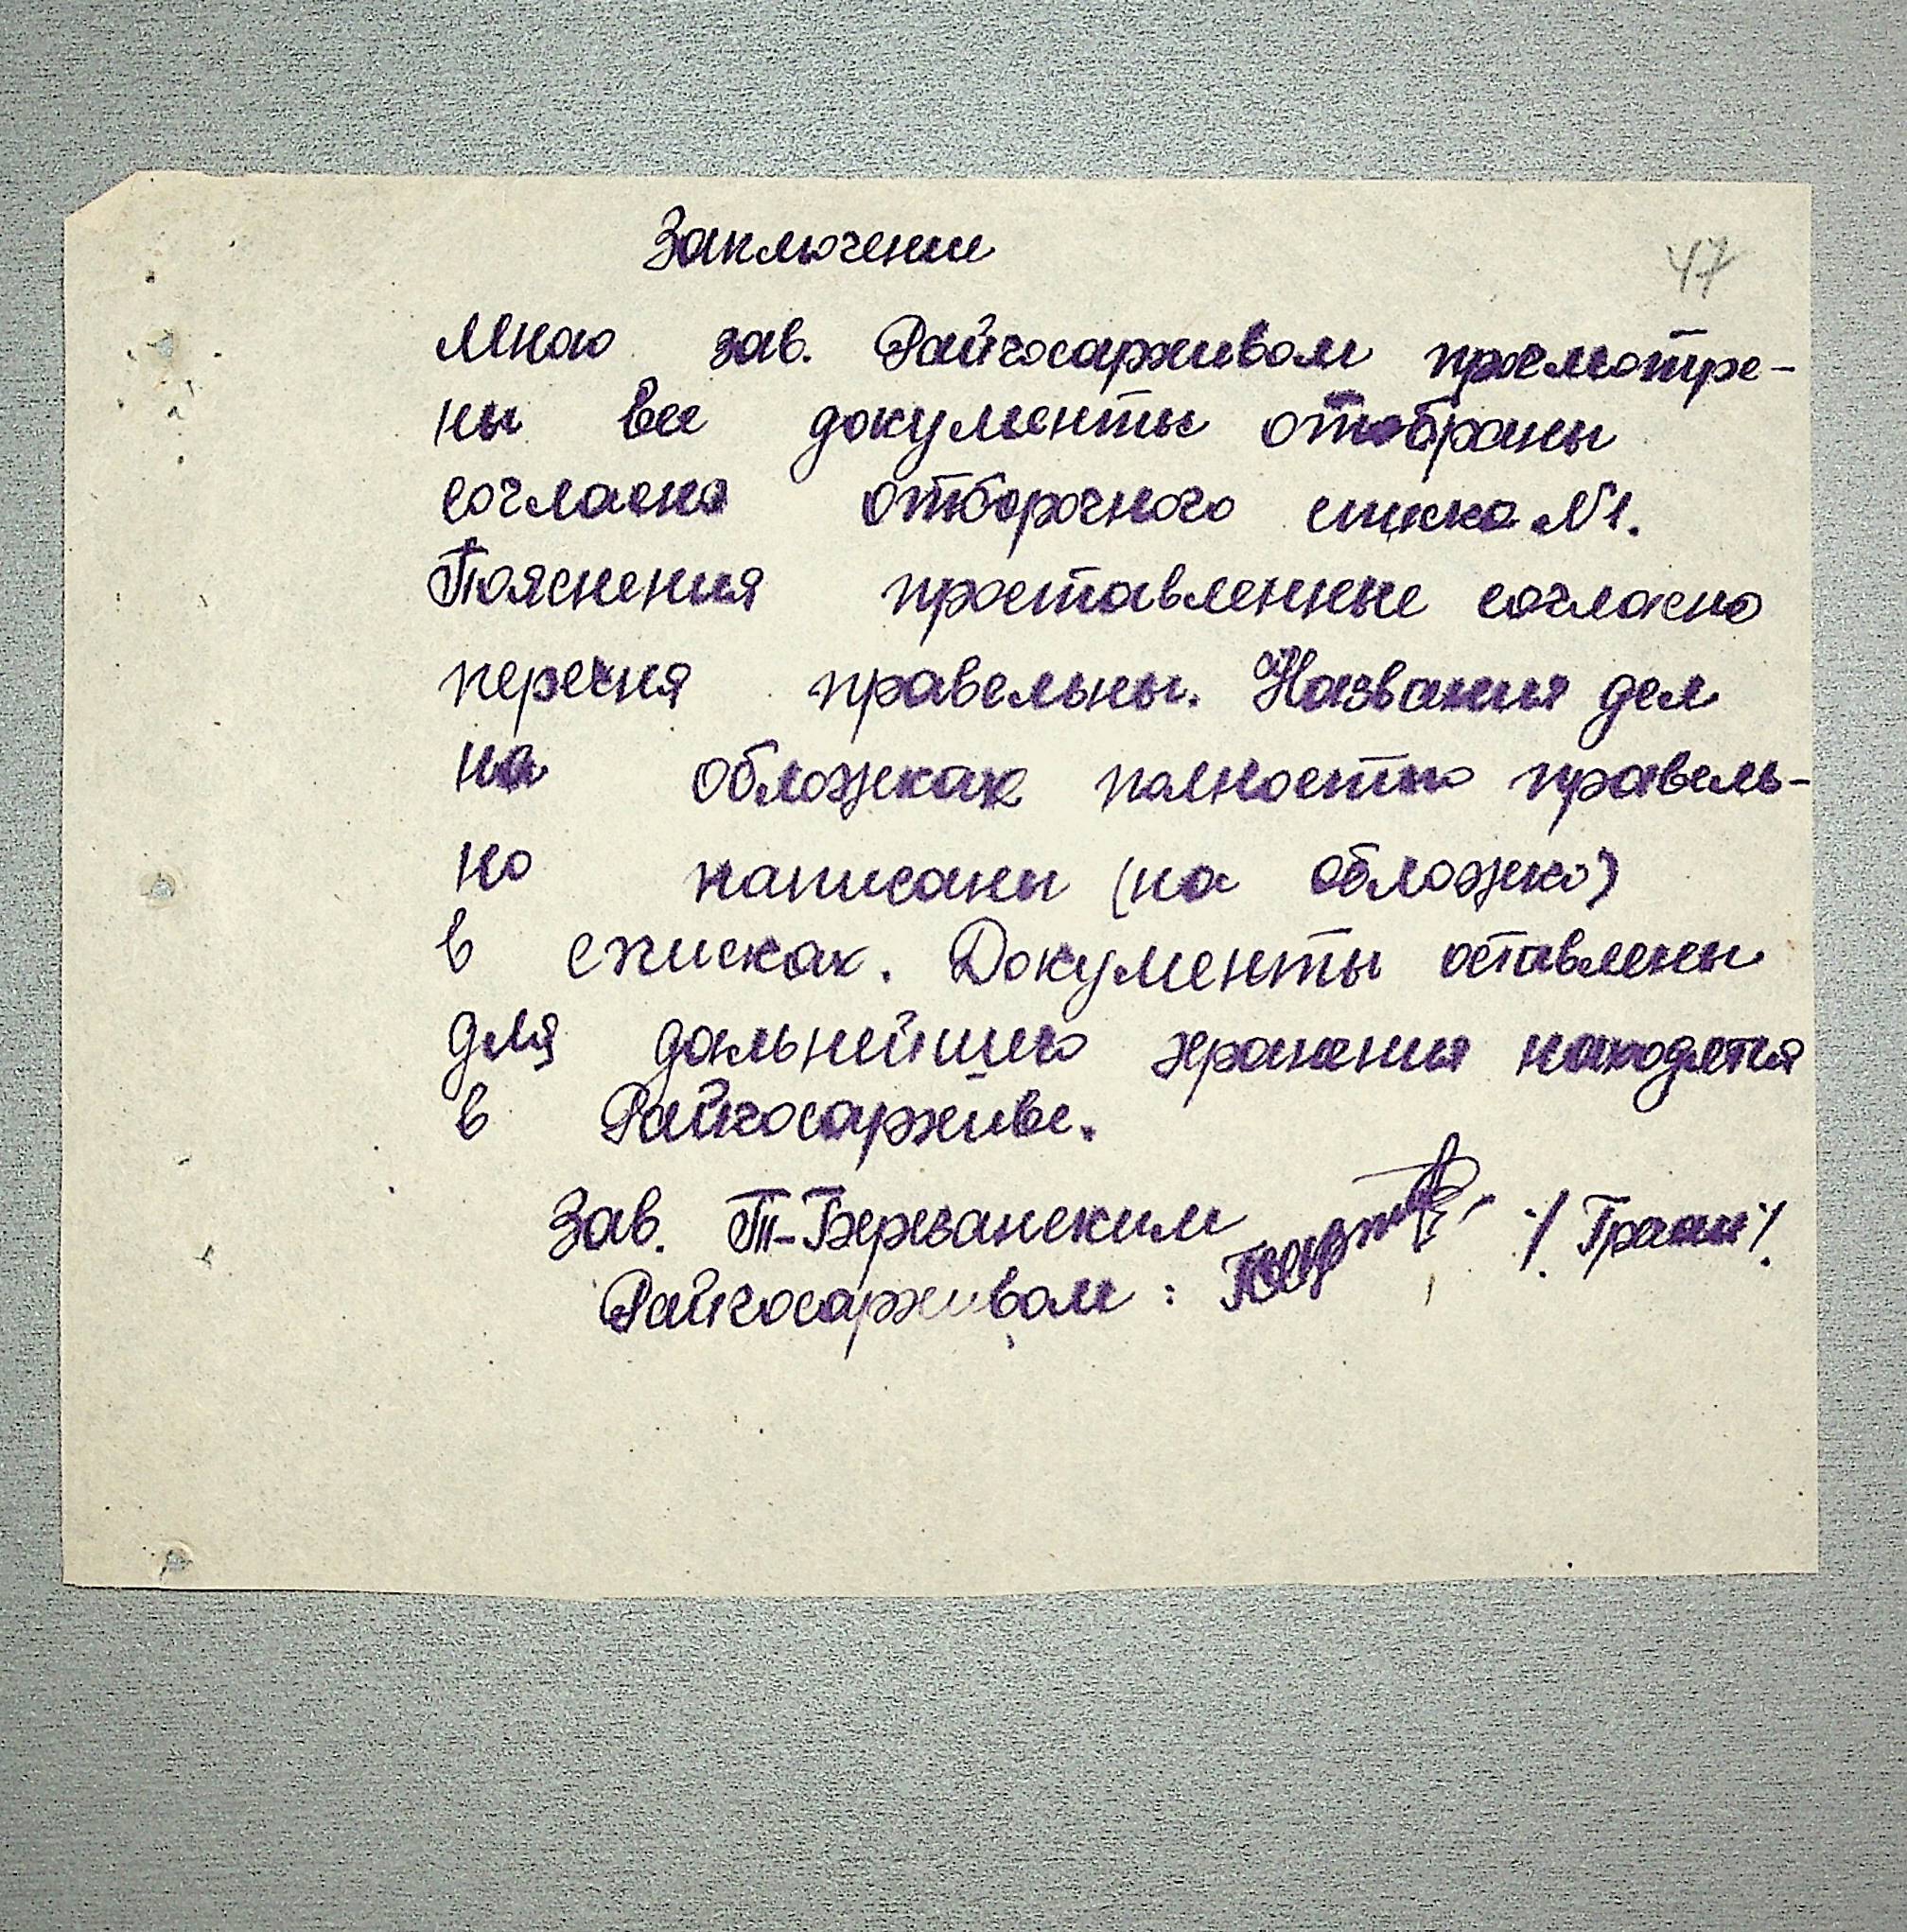 Заключение
47
Мною зав. Райгосархивом просмотре-
ны все документы отобраны
согласно отборочного списка №1.
Пояснения проставленные согласно
перечня правельны. Названия дел
на обложках полностью правель-
но написаны (на обложке)
в списках. Документы оставлены
для дальнейшего хранения находятся
в Райгосархиве.
Зав. Т-Березанским
Райгосархивом :